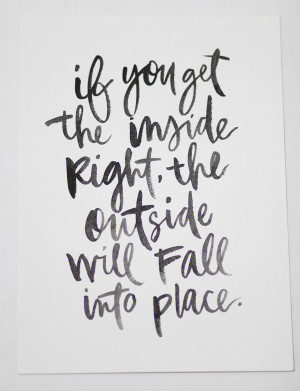 if you get
the inside
Right, the
outside
will Fall
into place.